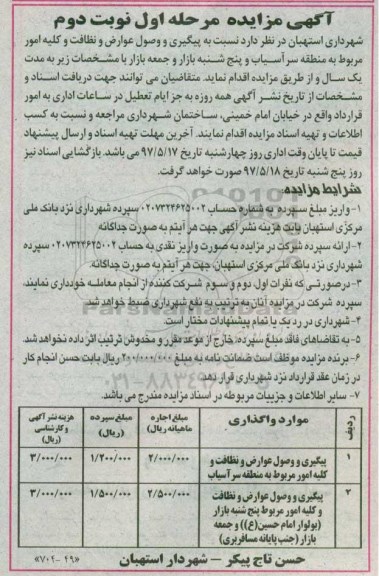 آگهی مزایده مرحله اول نوبت دوم
شهرداری استهبان در نظر دارد نسبت به پیگیری و وصول عوارض و نظافت و کلیه امور
مربوط به منطقه سرآسیاب و پنج شنبه بازار و جمعه بازار با مشخصات زیر به مدت
یک سال و از طریق مزایده اقدام نماید. متقاضیان می توانند جهت دریافت اسناد و
مشخصات از تاریخ نشر آگهی همه روزه به جز ایام تعطیل در ساعات اداری به امور
قرارداد واقع در خیابان امام خمینی، ساختمان شهرداری مراجعه و نسبت به کسب
اطلاعات و تهیه اسناد مزایده اقدام نمایند. آخرین مهلت تهیه اسناد و ارسال پیشنهاد
قیمت تا پایان وقت اداری روز چهارشنبه تاریخ ۹۷/۵/۱۷ می باشد. بازگشایی اسناد نیز
روز پنج شنبه تاریخ ۹۷/۵/۱۸ صورت خواهد گرفت.
شرایط مزایده:
۱- واریز مبلغ سپرده به شماره حساب ۰۲۰۷۳۲۴۶۲۵۰۰۲ سپرده شهرداری نزد بانک ملی
مرکزی استهبان بابت هزینه نشر آگهی جهت هر آیتم به صورت جداگانه
۲- ارائه سپرده شرکت در مزایده به صورت واریز نقدی به حساب ۰۲۰۷۳۲۴۶۲۵۰۰۲ سپرده
شهرداری نزد بانک ملی مرکزی استهبان، جهت هر آیتم به صورت جداگانه.
۳- درصورتی که نفرات اول دوم و سوم شرکت کننده از انجام معامله خودداری نمایند،
سپرده شرکت در مزایده آنان به ترتیب به نفع شهرداری ضبط خواهد شد.
۴- شهرداری در رد یک یا تمام پیشنهادات مختار است.
۵- به تقاضاهای فاقد مبلغ سپرده، خارج از موعد مقرر و مخدوش ترتیب اثر داده نخواهد شد.
۶- برنده مزایده موظف است ضمانت نامه به مبلغ ۲۰۰/۰۰۰/۰۰۰ ریال بابت حسن انجام کار
در زمان عقد قرارداد نزد شهرداری قرار دهد.
۷- سایر اطلاعات و جزییات مربوطه در اسناد مزایده مندرج می باشد.
ردیف موارد واگذاری مبلغ اجاره ماهیانه (ریال) مبلغ سپرده (ریال) هزینه نشر آگهی و کارشناسی (ریال)
۱ پیگیری و وصول عوارض و نظافت و کلیه امور مربوط به منطقه سرآسیاب ۲/۰۰۰/۰۰۰ ۱/۲۰۰/۰۰۰ ۳/۰۰۰/۰۰۰
۲ پیگیری و وصول عوارض و نظافت و کلیه امور مربوط پنج شنبه بازار (بولوار امام حسین(ع)) و جمعه بازار (جنب پایانه مسافربری) ۲/۵۰۰/۰۰۰ ۱/۵۰۰/۰۰۰ ۳/۰۰۰/۰۰۰
حسن تاج پیکر – شهردار استهبان
«۷۰۲-۴۹»
ParsNamadData